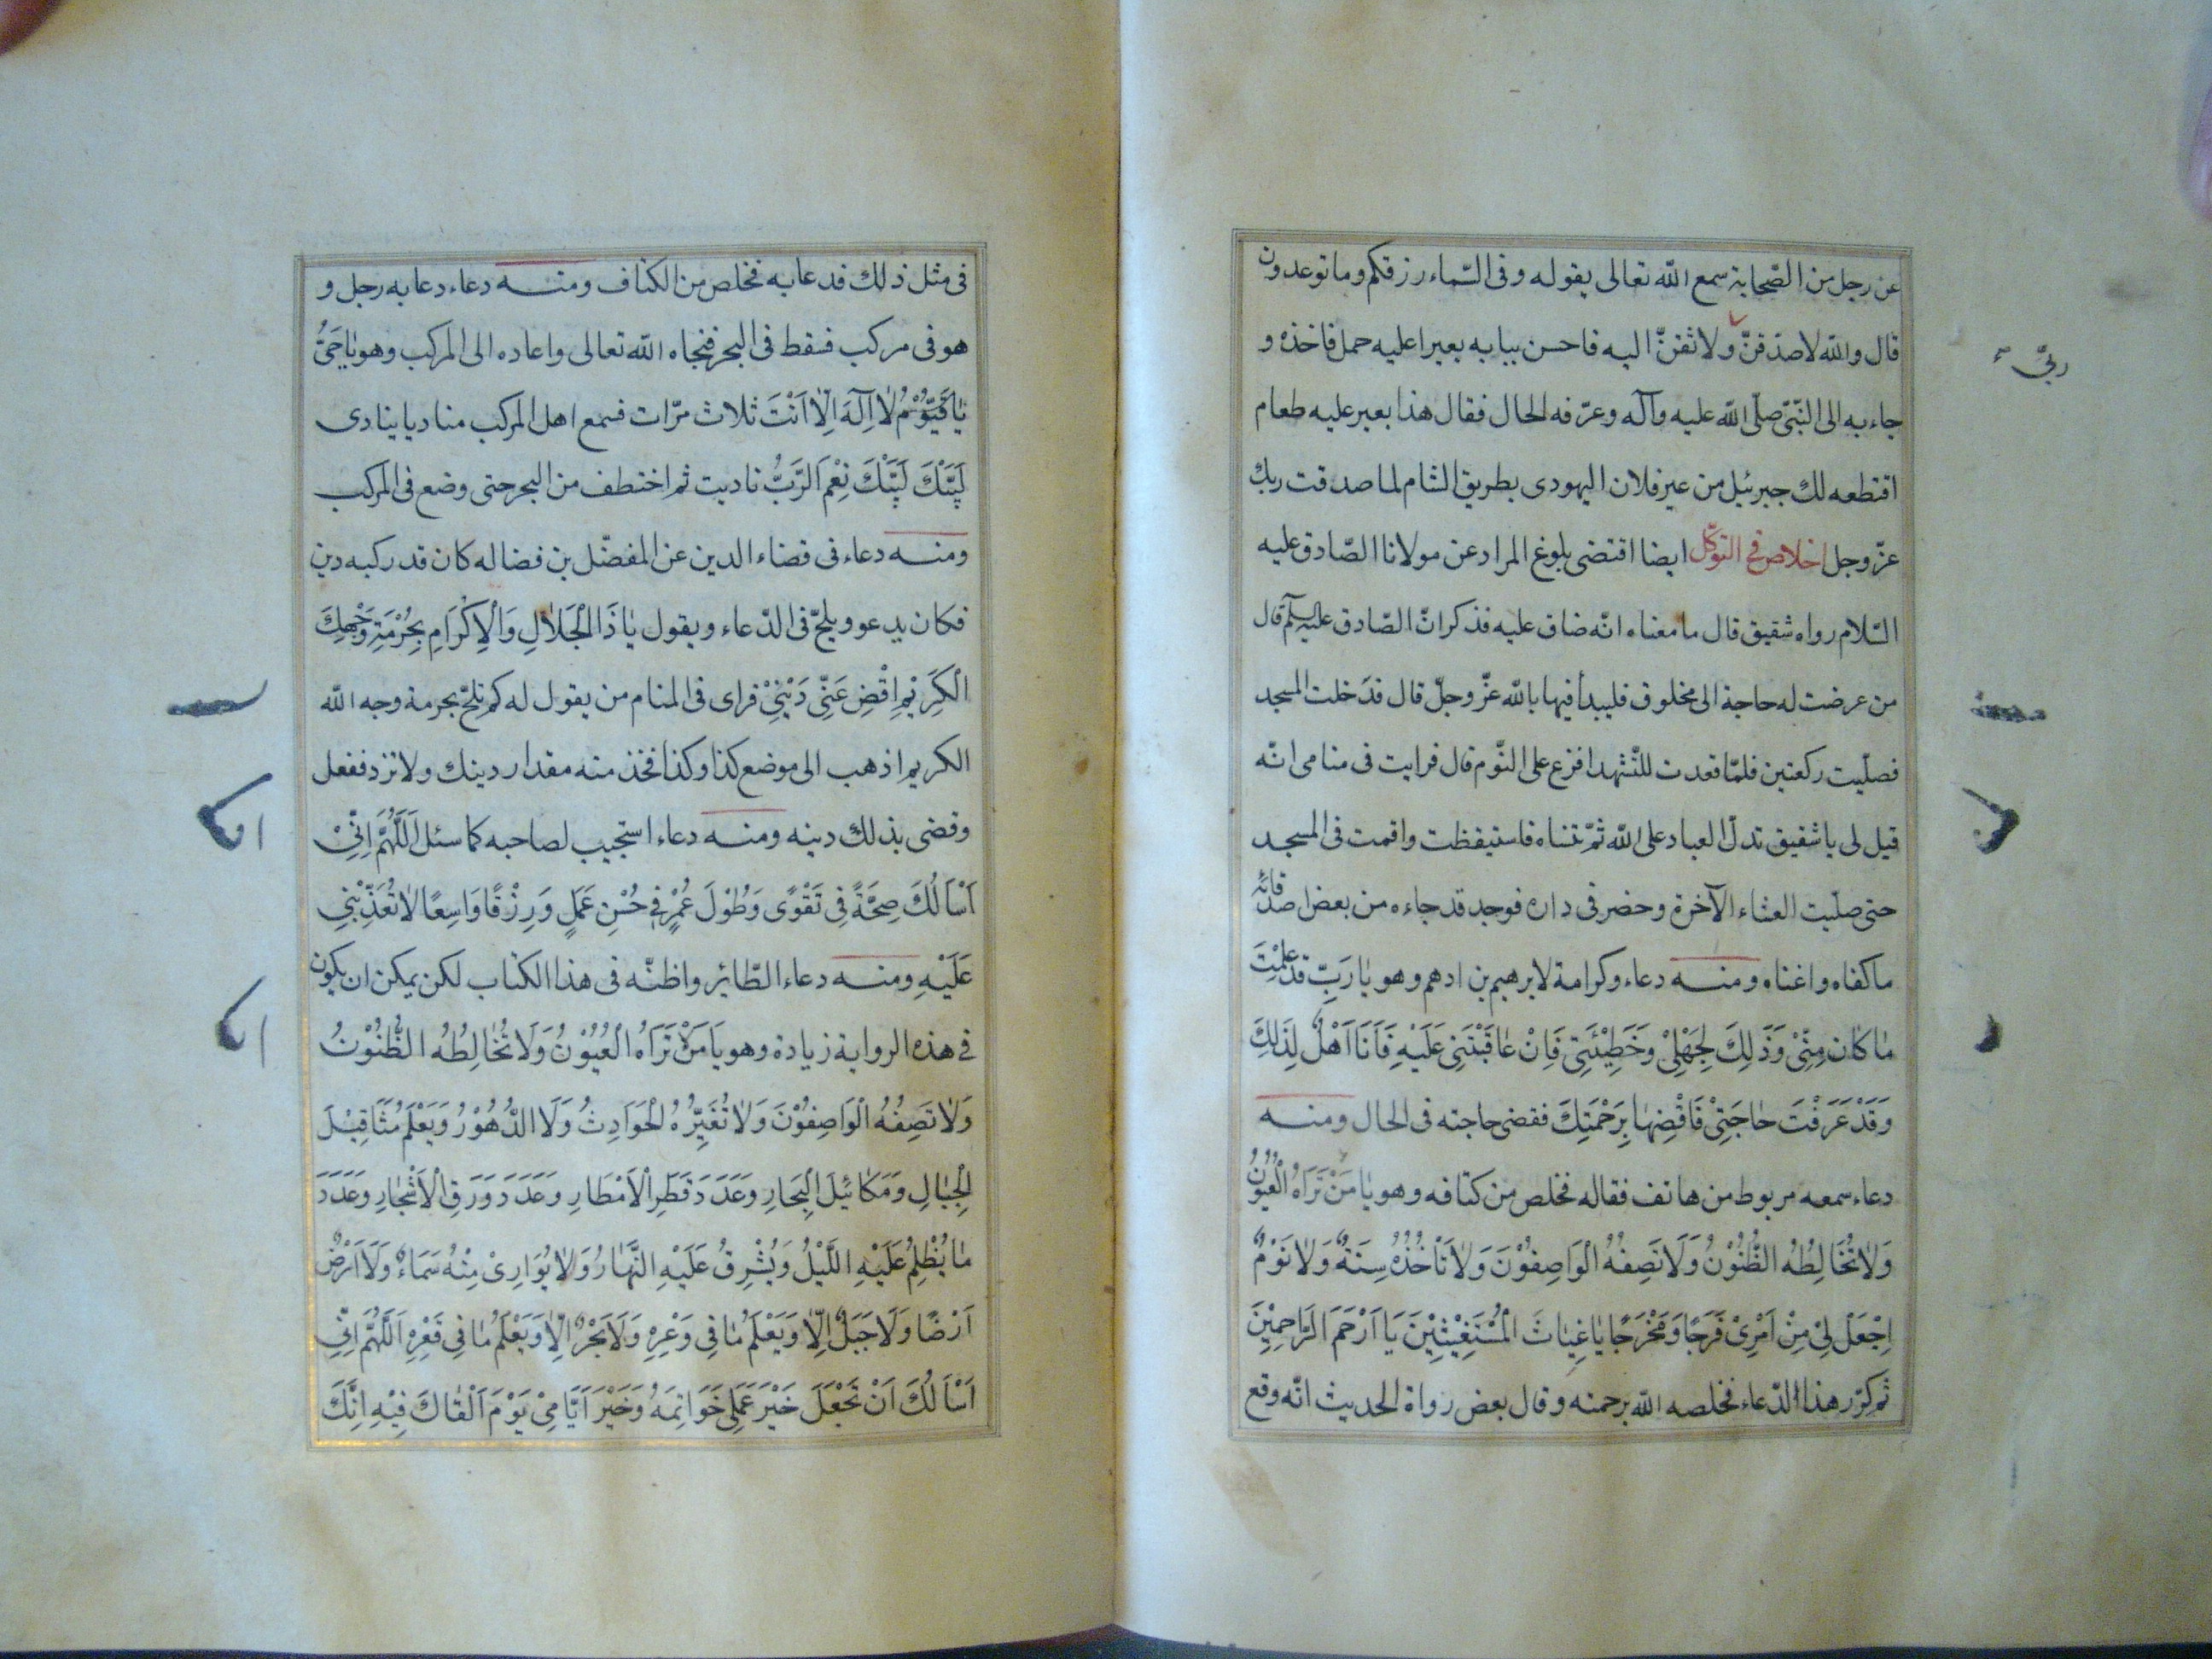 عن رجل من الصّحابة سمع الله تعالى يقوله وفى السّماء رزقكم وما توعدون
قال والله لاصدقنّ ولاثقنّ اليه فاحسن ببابه بعيرا عليه حمل فاخذه و
ربّي
جاء به الى النّبىّ صلّى الله عليه وآله وعرّفه الحال فقال هذا بعير عليه طعام
اقتطعه لك جبرئيل من عير فلان اليهودى بطريق الشام لما صدقت ربك
عزّ وجل اخلاص فى التوكّل ايضا اقتضى بلوغ المراد عن مولانا الصّادق عليه
السّلام رواه شقيق قال ما معناه انّه ضاق عليه فذكر انّ الصّادق عليه السلم قال
من عرضت له حاجة الى مخلوق فليبدأ فيها بالله عزّ وجلّ قال فدخلت المسجد
فصلّيت ركعتين فلمّا قعدت للتّشهد افزع على النّوم قال فرايت فى منامى انّه
قيل لى يا شقيق تدلّ العباد على الله ثمّ تنساه فاستيقظت واقمت فى المسجد
حتى صلّيت العشاء الآخرة وحضر فى داره فوجد قد جاءه من بعض اصدقائه
ما كفاه واغناه ومنه دعاء وكرامة لابرهيم بن ادهم وهو يا رَبِّ قد عَلِمْتَ
مٰا كٰانَ مِنّىْ وَذَلِكَ لِجَهْلِىْ وَخَطِيْئَتِىْ فَاِنْ عٰاقَبْتَنِىْ عَلَيْهِ فَاَنَا اَهْلٌ لِذَلِكَ
وَقَدْ عَرَفْتَ حٰاجَتِىْ فَاقْضِهٰا بِرَحْمَتِكَ فقضى حاجته فى الحال ومنه
دعاء سمعه مربوط من هاتف فقاله فخلص من كتافه وهو يٰا مَنْ تَرَاهُ الْعُيُوْنُ
وَلاٰ تُخَالِطُهُ الظُّنُوْنُ وَلَا تَصِفُهُ الْوَاصِفُوْنَ وَلاٰ تَاْخُذُهُ سِنَةٌ وَلاٰ نَوْمٌ
اِجْعَلْ لِىْ مِنْ اَمْرِىْ فَرَجًا وَمَخْرَجًا يٰا غِيٰاثَ الْمُسْتَغِيْثِيْنَ يَا اَرْحَمَ الرَّاحِمِيْنَ
ثم كرّر هذا الدّعاء فخلصه الله برحمته وقال بعض رواة الحديث انّه وقع
فى مثل ذلك فدعا به فخلص من الكتاف ومنه دعاء دعا به رجل و
هو فى مركب فسقط فى البحر فنجاه الله تعالى واعاده الى المركب وهو يٰا حَىُّ
يٰا قَيُّوْمُ لاٰ اِلٰهَ اِلّا اَنْتَ ثلاث مرّات فسمع اهل المركب مناديا ينادى
لَبَّيْكَ لَبَّيْكَ نِعْمَ الرَّبُّ ناديت ثم اختطف من البحر حتى وضع فى المركب
ومنه دعاء فى قضاء الدين عن المفضّل بن فضاله كان قد ركبه دين
فكان يدعو ويلحّ فى الدّعاء ويقول يٰا ذَا الْجَلاٰلِ وَالْاِكْرَامِ بِحُرْمَةِ وَجْهِكَ
الْكَرِيْمِ اِقْضِ عَنّىْ دَيْنِىْ فراى فى المنام من يقول له كم تلحّ بحرمة وجه الله
الكريم اذهب الى موضع كذا وكذا فخذ منه مقدار دينك ولا تزد ففعل
وقضى بذلك دينه ومنه دعاء استجيب لصاحبه كما سئل اَللّٰهُمَّ اِنِّىْ
اَسْاَلُكَ صِحَّةً فِى تَقْوًى وَطُوْلَ عُمْرٍ فِى حُسْنِ عَمَلٍ وَرِزْقًا وَاسِعًا لاٰ تُعَذِّبْنِى
عَلَيْهِ ومنه دعاء الطّائر واظنّه فى هذا الكتاب لكن يمكن ان يكون
فى هذه الرواية زيادة وهو يَا مَنْ تَرَاهُ الْعُيُوْنُ وَلَا تُخٰالِطُهُ الظُّنُوْنُ
وَلاٰ تَصِفُهُ الْوَاصِفُوْنَ وَلاٰ تُغَيِّرُهُ الْحَوَادِثُ وَلَا الدُّهُوْرُ وَيَعْلَمُ مَثَاقِيْلَ
الْجِبٰالِ وَمَكَائِيْلَ الْبِحَارِ وَعَدَدَ قَطْرِ الْاَمْطَارِ وَعَدَدَ وَرَقِ الْاَشْجٰارِ وَعَدَدَ
مٰا يُظْلِمُ عَلَيْهِ اللَّيْلُ وَيُشْرِقُ عَلَيْهِ النَّهَارُ وَلاٰ يُوَارِىْ مِنْهُ سَمَاءٌ وَلَا اَرْضٌ
اَرْضًا وَلَا جَبَلٌ اِلّا وَيَعْلَمُ مٰا فِى وَعْرِهِ وَلَا بَحْرٌ اِلّا وَيَعْلَمُ مٰا فِى قَعْرِهِ اَللّٰهُمَّ اِنِّىْ
اَسْاَلُكَ اَنْ تَجْعَلَ خَيْرَ عَمَلِى خَوَاتِمَهُ وَخَيْرَ اَيَّامِىْ يَوْمَ اَلْقَاكَ فِيْهِ اِنَّكَ